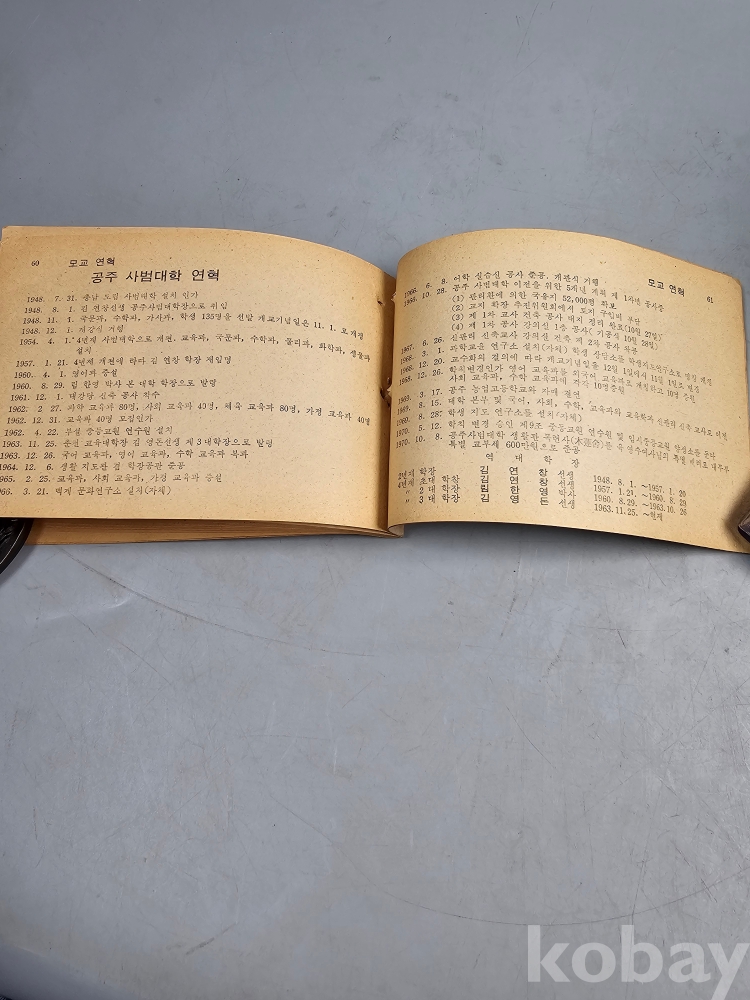 60 모교 연혁
공주 사범대학 연혁
1948. 7. 31. 충남 도립 사범대학 설치 인가
1948. 8. 1. 김 연창선생 공주사범대학장으로 취임
1948. 11. 1. 국문과, 수학과, 가사과, 학생 135명을 선발 개교기념일은 11. 1. 로 제정
1948. 12. 1. 개강식 거행
1954. 4. 1. 4년제 사범대학으로 개편, 교육과, 국문과, 수학과, 물리과, 화학과, 생물과
설치
1957. 1. 21. 4년제 개편에 따라 김 연창 학장 재임명
1960. 4. 1. 영어과 증설
1960. 8. 29. 림 한영 박사 본 대학 학장으로 발령
1961. 12. 1. 대강당 신축 공사 착수
1962. 2. 27. 과학 교육과 80명, 사회 교육과 40명, 체육 교육과 80명, 가정 교육과 40명
1962. 12. 31. 교육과 40명 모집인가
1962. 4. 22. 부설 중등교원 연수원 설치
1963. 11. 25. 문천 교육대학장 김 영돈선생 제 3대학장으로 발령
1963. 12. 26. 국어 교육과, 영어 교육과, 수학 교육과 복과
1964. 12. 6. 생활 지도관 겸 학장공관 준공
1965. 2. 25. 교육과, 사회 교육과, 가정 교육과 증설
1966. 3. 21. 백제 문화연구소 설치(자체)
모교 연혁 61
1966. 6. 8. 어학 실습실 공사 준공, 개관식 거행
1966. 10. 28. 공주 사범대학 이전을 위한 5개년 계획 제 1차년 공사중
(1) 관리환에 의한 국유지 52,000평 확보
(2) 교지 확장 추진위원회에서 토지 구입비 부담
(3) 제 1차 교사 건축 공사 대지 정리 완료(10월 27일)
(4) 제 1차 공사 강의실 1층 공사( 기공식 10월 28일)
1967. 6. 26. 신관리 신축교사 강의실 건축 제 2차 공사 착공
1968. 3. 1. 과학교육 연구소 설치(자체) 학생 상담소를 학생지도연구소로 발령 개정
1968. 12. 20. 교수회의 결의에 따라 개교기념일을 12월 1일에서 11월 1일로 변경
1968. 12. 26. 학칙변경인가 영어 교육과를 외국어 교육과로 개칭하고 10명 증원
사회 교육과, 수학 교육과에 각각 10명증원
1969. 3. 17. 공주 농업고등학교와 자매 결연
1969. 8. 15. 대학 본부 및 국어, 사회, 수학, 교육과와 교육학과 신관리 신축 교사로 이전
1970. 8. 28. 학생 지도 연구소를 설치(자체)
1970. 5. 12. 학칙 변경 승인 제9조 중등교원 연수원 및 임시중등교원 양성소를 둔다
1970. 10. 8. 공주사범대학 생활관 목련사(木蓮舍)를 육 영수여사님의 특별 배려로 내무부
특별 교부세 600만원으로 준공
역 대 학 장
2년제 학장 김 연 창 선생 1948. 8. 1. ~1957. 1. 20
4년제 초대 학장 김 연 창 선생 1957. 1. 21. ~1960. 8. 29
〃 2 대 학장 림 한 영 박사 1960. 8. 29. ~1963. 10. 26
〃 3 대 학장 김 영 돈 선생 1963. 11. 25. ~현재
kobay